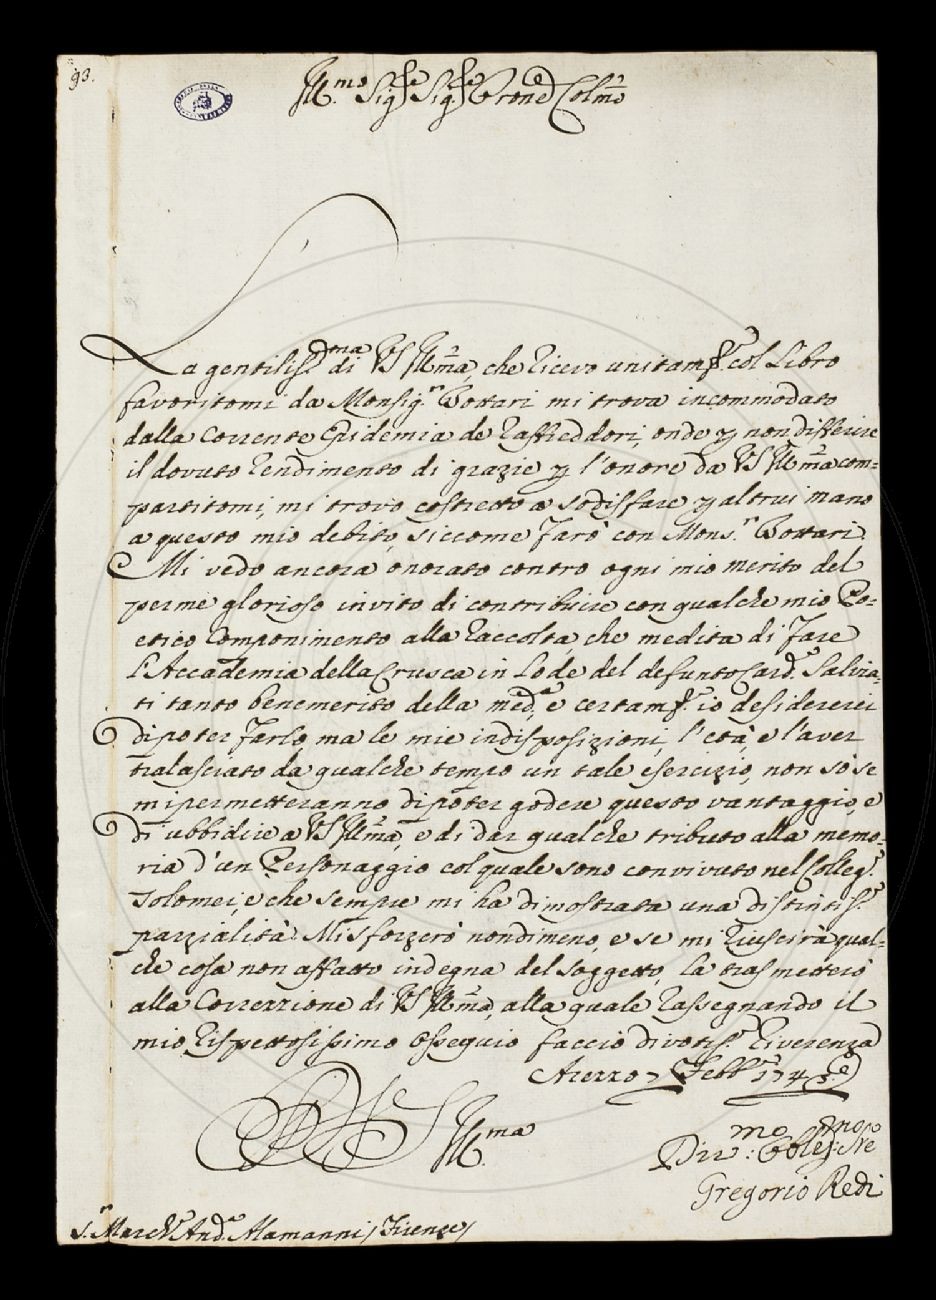 93.
Ill.mo Sig.re Sig.re e Prone Colmo
La gentiliss.ma di VS Ill.ma, che ricevo unitam.te col Libro
favoritomi da Monsig.r Bottari mi trova incommodato
dalla corrente Epidemia de raffreddori, onde p non differire
il dovuto rendimento di grazie p l'onore da VS Ill.ma com=
partitomi, mi trovo costretto a sodisfare p altrui mano
a questo mio debito, siccome farò con Mons.r Bottari.
Mi vedo ancora onorato contro ogni mio merito del
per me glorioso invito di contribuire con qualche mio Po=
etico Componimento alla raccolta, che medita di fare
l'Accademia della Crusca in Lode del defunto Card.e Salvia=
ti tanto benemerito della med.a, e certam.te io desidererei
di poter farlo, ma le mie indisposizioni, l'età, e l'aver
tralasciato da qualche tempo un tale esercizio, non so se
mi permetteranno di poter godere questo vantaggio, e
di ubbidire a VS Ill.ma, e di dar qualche tributo alla memo=
ria d'un Personaggio col quale sono convivuto nel Colleg.o
Tolomei, e che sempre mi ha dimostrata una distintiss.a
parzialità. Mi sforzerò nondimeno, e se mi riuscirà qual=
che cosa non affatto indegna del soggetto, la trasmetterò
alla Correzzione di VS Ill.ma, alla quale rassegnando il
mio rispettosissimo ossequio faccio divotiss.a riverenza
Arezzo 7 Febb.o 1743
Ill.ma
Div.mo Obblig.mo Sre
Gregorio Redi
S.r March.e And.a Alamanni / Firenze /